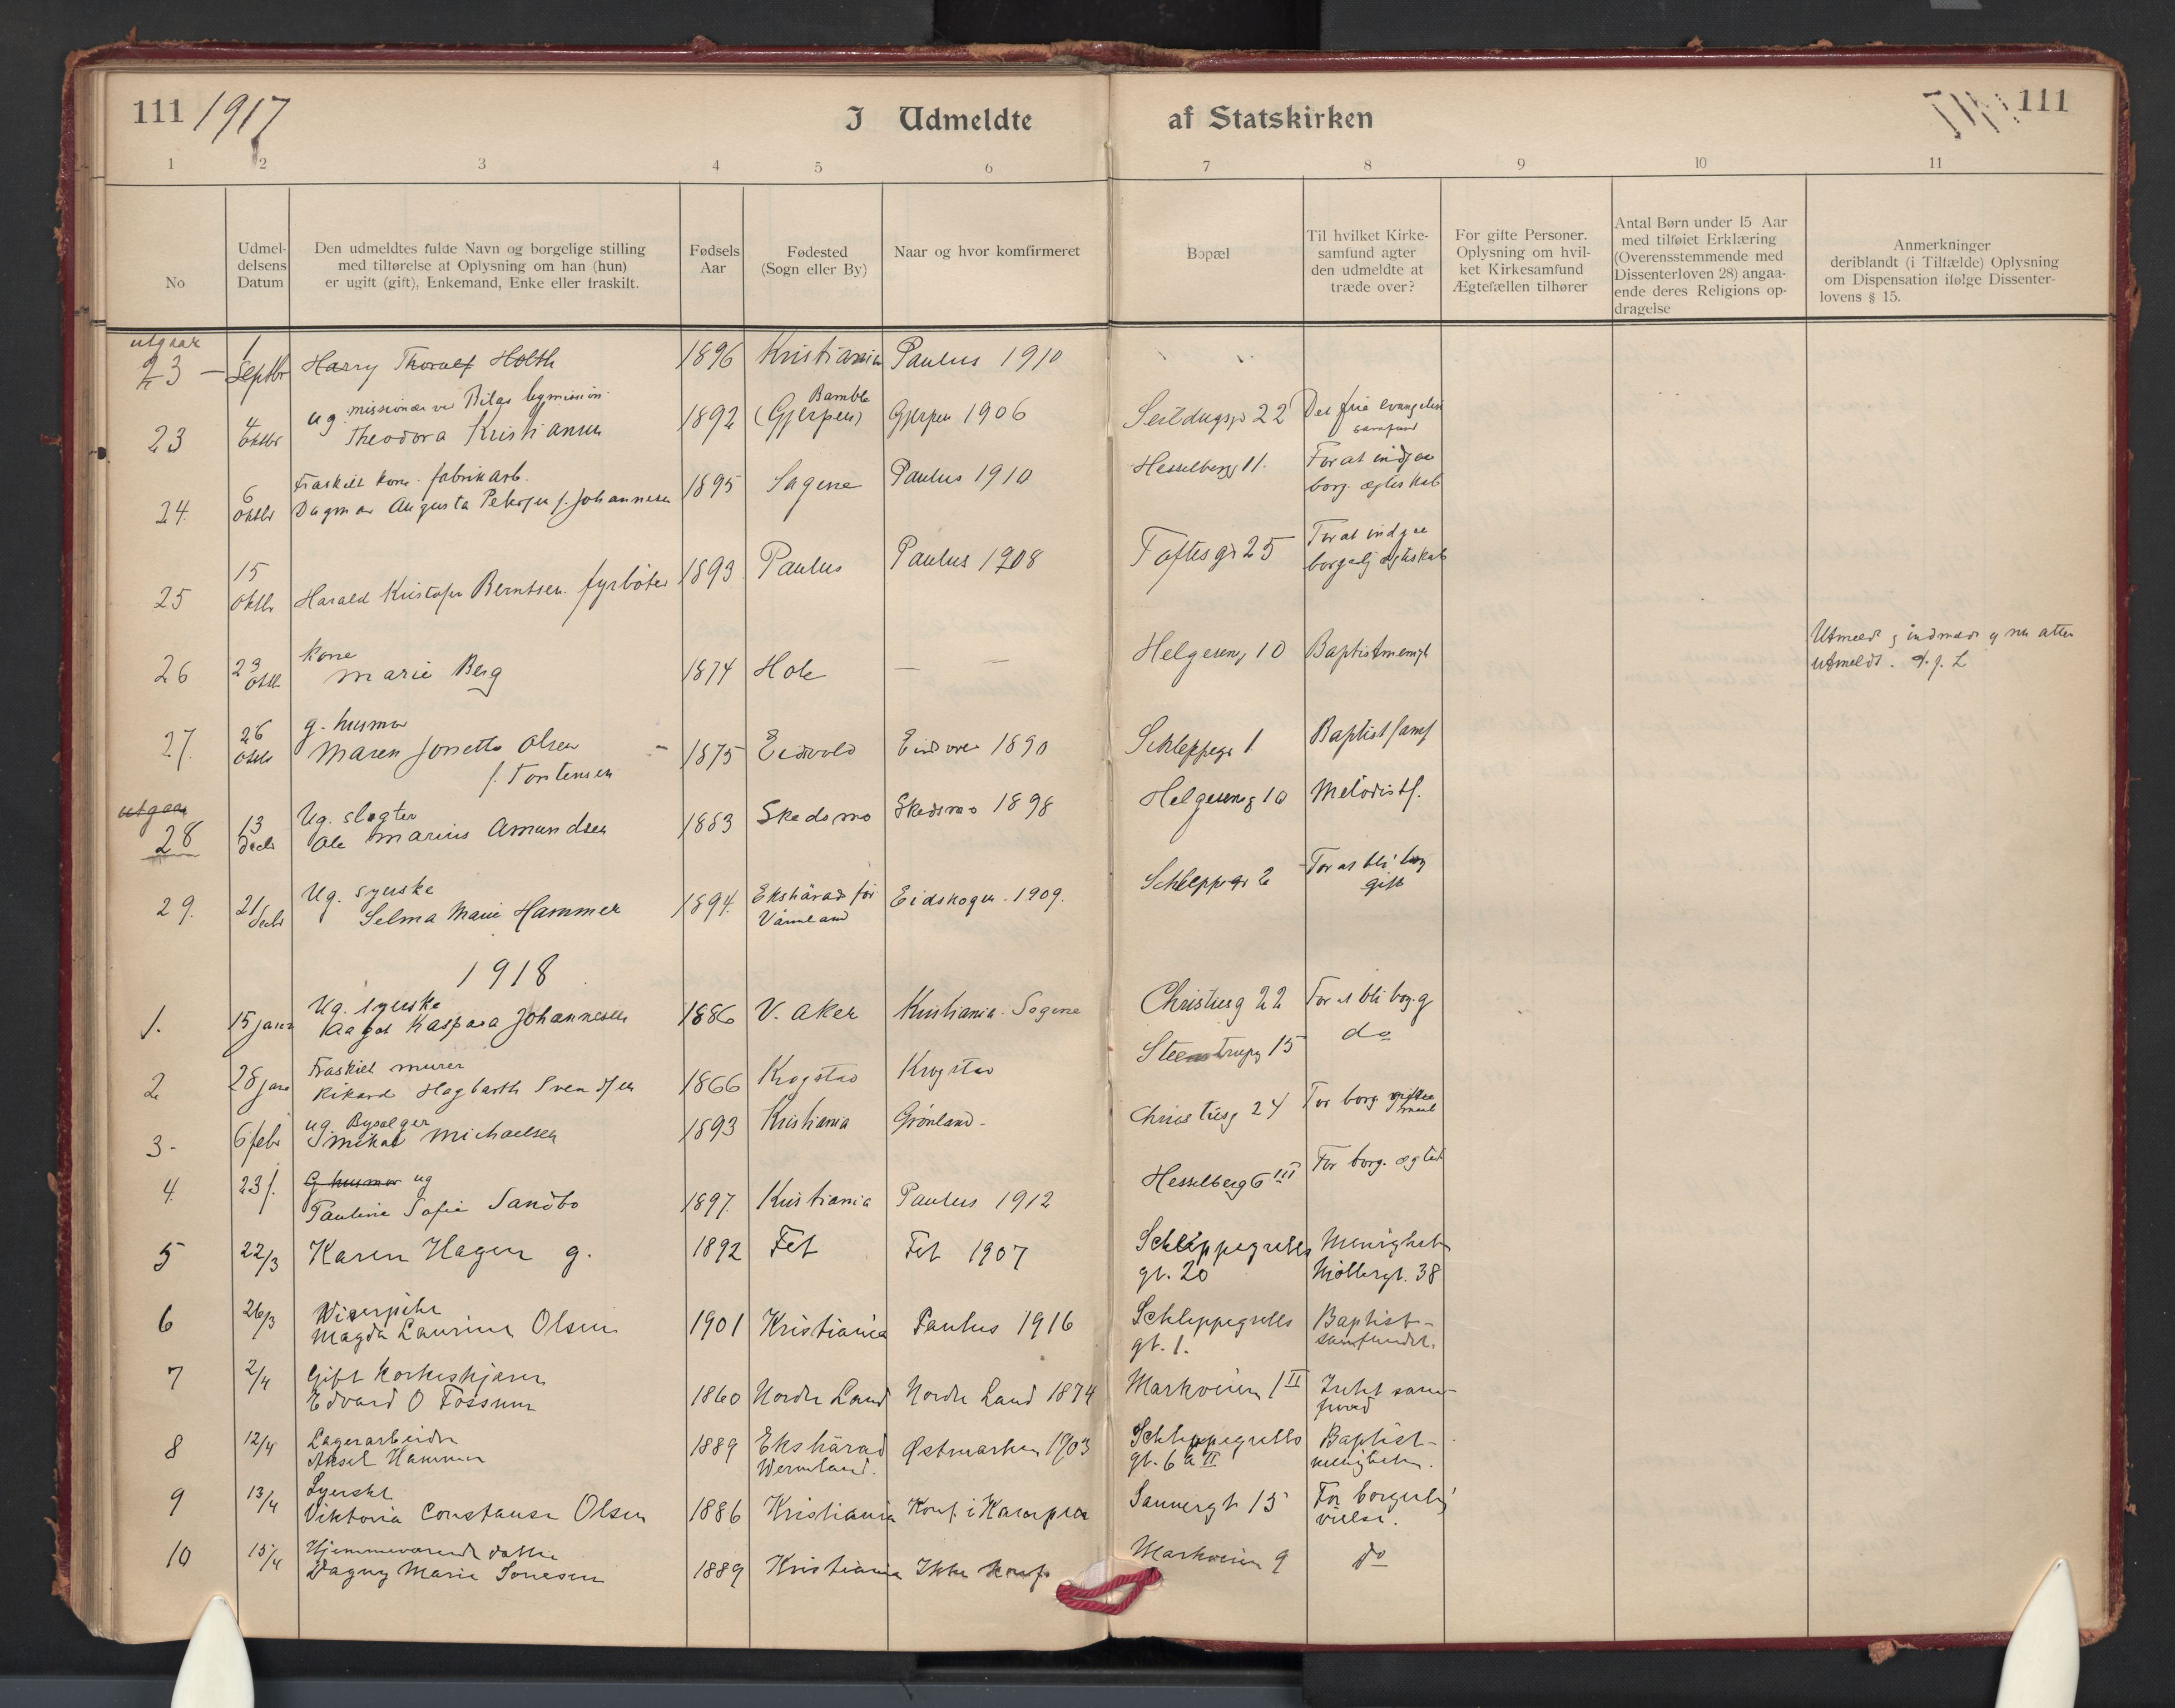 111 1917
I Udmeldte af Statskirken
111
1 2 3 4 5 6 7 8 9 10 11
No
Udmeldelsens Datum
Den udmeldtes fulde Navn og borgelige stilling
med tilførelse af Oplysning om han (hun)
er ugift (gift), Enkemand, Enke eller fraskilt.
Fødsels Aar
Fødested
(Sogn eller By)
Naar og hvor komfirmeret
Bopæl
Til hvilket Kirke-
samfund agter
den udmeldte at
træde over?
For gifte Personer.
Oplysning om hvil-
ket Kirkesamfund
Ægtefællen tilhører
Antal Børn under 15 Aar
med tilføiet Erklæring
(Overensstemmende med
Dissenterloven 28) angaa-
ende deres Religions op-
dragelse
Anmerkninger
deriblandt (i Tilfælde) Oplysning
om Dispensation ifølge Dissenter-
lovens § 15.
utgaar
23 – 1 Septbr Harry Thoralf Holth 1896 Kristiania Paulus 1910
23 4 Oktbr ug. missionær
Theodora Kristiansen 1892 Bamble (Gjerpen) Gjerpen 1906 Seildugsg 22 Det frie evangeliske samfund
24. 6 Oktbr Fraskilt kone fabrikarb.
Dagmar Augusta Petersen f. Johannesen 1895 Sagene Paulus 1910 Hesselbergg 11. For at indgaa
borg. ægteskab
25 15 Oktbr Harald Kristofer Berntsen. fyrbøter 1893 Paulus Paulus 1908 Toftesgt 25 For at indgaa
borgerlj ægteskab
26 23 Oktb kone
Marie Berg 1874 Hole — — Helgeseng 10 Baptistmenigh
Utmeldt og indmeldt og nu atter
utmeldt.
27. 26 Oktb g. husmor
Maren Josette Olsen
f. Torstensen 1875 Eidsvold 1890 Schleppegr 1 Baptist samf
utgaar
28 13 Decb Ug. slagter
Ole Marius Amundsen 1883 Skedsmo Skedsmo 1898 Helgeseng 10 Metodistf.
29. 21 Decbr Ug. syerske
Selma Marie Hammer 1894. Ekshärad för
Värmland Eidskogen. 1909. Schleppegr 2 For at bli borg
gift
1918
1. 15 janr Ug. syerske
Aagot Kaspara Johannesen 1886 V. Aker Kristiania. Sagene Christiesg 22 For at bli borg. g
2 28 janr Fraskilt murer
Rikard Hagbarth Svendsen 1866 Krogstad Krogstad Steenstrupg 15 do
3- 6 febr ug Bysælger
Mikal Michaelsen 1893 Kristiania Grønland- Christiesg 24 For borg. giftermaal
4. 23/ G husmor ug
Pauline Sofie Sandbo 1897. Kristiania Paulus 1912 Hesselberg 6 III For borg. ægtesk
5 22/3 Karen Hagen g. 1892 Fet Fet 1907 Schleppegrells
gt. 20 Menigheten
Møllergt. 38
6 26/3 Viserpike
Magda Laurine Olsen 1901 Kristiania Paulus 1916 Schleppegrells
gt. 1. Baptist-
samfundet.
7 2/4 Gift Korkeskjærer
Edvard O Fossum 1860 Nordre Land Nordre Land 1874 Markveien 1 II Intet sam-
fund
8 12/4 Lagerarbeider
Aksel Hammer 1889 Ekshärad
Wermland. Østmarken 1903 Schleppegrells
gt. 6 a II Baptist-
menigheten.
9 13/4 Syerske
Viktoria Constanse Olsen 1886 Kristiania Konf. i Kampen Sannergt 15 For borgerlig
vielse.
10 15/4 Hjemmeværende datter
Dagny Marie Sonesen 1889 Kristiania Ikke konf. Markveien 9 do